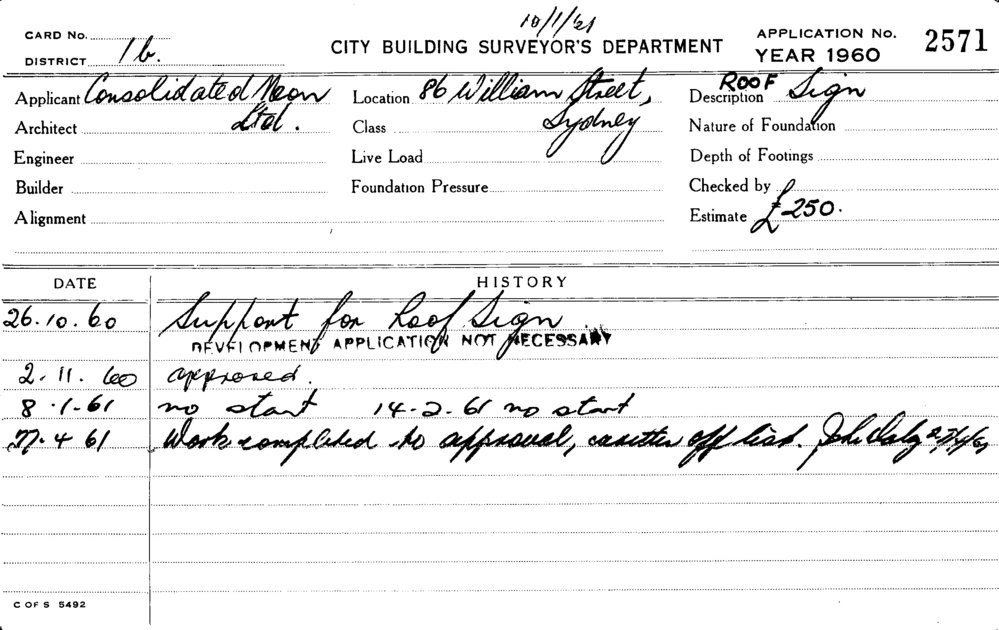 10/1/61
CARD No. CITY BUILDING SURVEYOR'S DEPARTMENT APPLICATION No. 2571
DISTRICT 1b. YEAR 1960
Applicant Consolidated Neon Location 86 William Street, Description ROOF Sign
Architect Ltd. Class Sydney Nature of Foundation
Engineer Live Load Depth of Footings
Builder Foundation Pressure Checked by
Alignment Estimate £250.
DATE HISTORY
26.10.60 Support for Roof Sign
DEVELOPMENT APPLICATION NOT NECESSARY
2.11.60 approved.
8.1-61 no start 14-2-61 no start
27.4 61 Work completed to approval, off list. John Daly 27/4/61
C OF S 5492